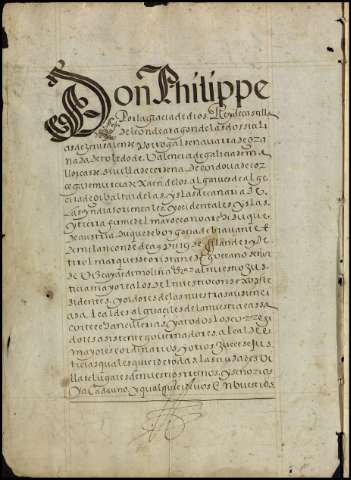 Don Philippe
Por la gracia de dios Rey de castilla
de leon de aragon de las dos sicilias
de Jerusalen de Portogal de navarra de Gra
nada de toledo de Valencia de galicia de ma
llorcas de sevilla de cerdena de cordova de cor
cega de murcia de Xaen de los algarves de alge
cira de gibraltar de las yslas de canaria de
las yndias orientales y occidentales yslas
y tierra firme del mar oceano archiduque
de austria duque de borgoña de bravante e
de milan conde de aspurg de flandes y de
tirol
de Vizcaya e de molina &c al nuestro Jus
ticia mayor e a los del nuestro consejo Presi
dentes y oydores de las nuestras audien
cias Alcaldes alguaciles de la nuestra casa
corte e chancillerias y a todos los corregi
dores asistente governadores alcaldes
mayores e ordinarios y otros Jueces e Jus
ticias qualesquier de todas las ciudades Vi
llas e lugares de nuestros reinos y señorios
y a cada uno y qualquier de vos e